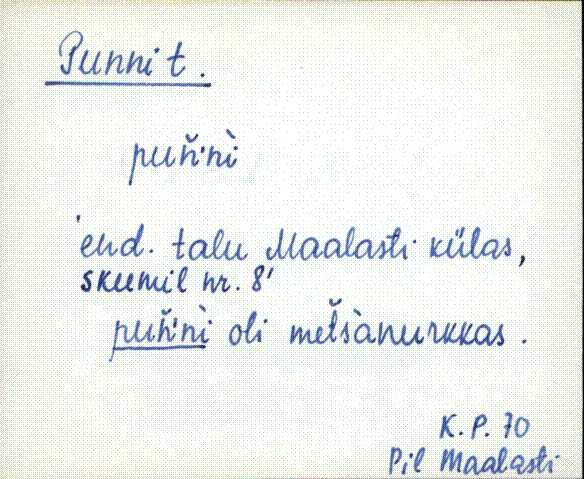 Punni t.
puń̆'nì
'end. talu Maalasti külas,
skumil nr. 8'
puń̆'nì oli met̆s̀anurkkas.
K. P. 70
Pil Maalasti